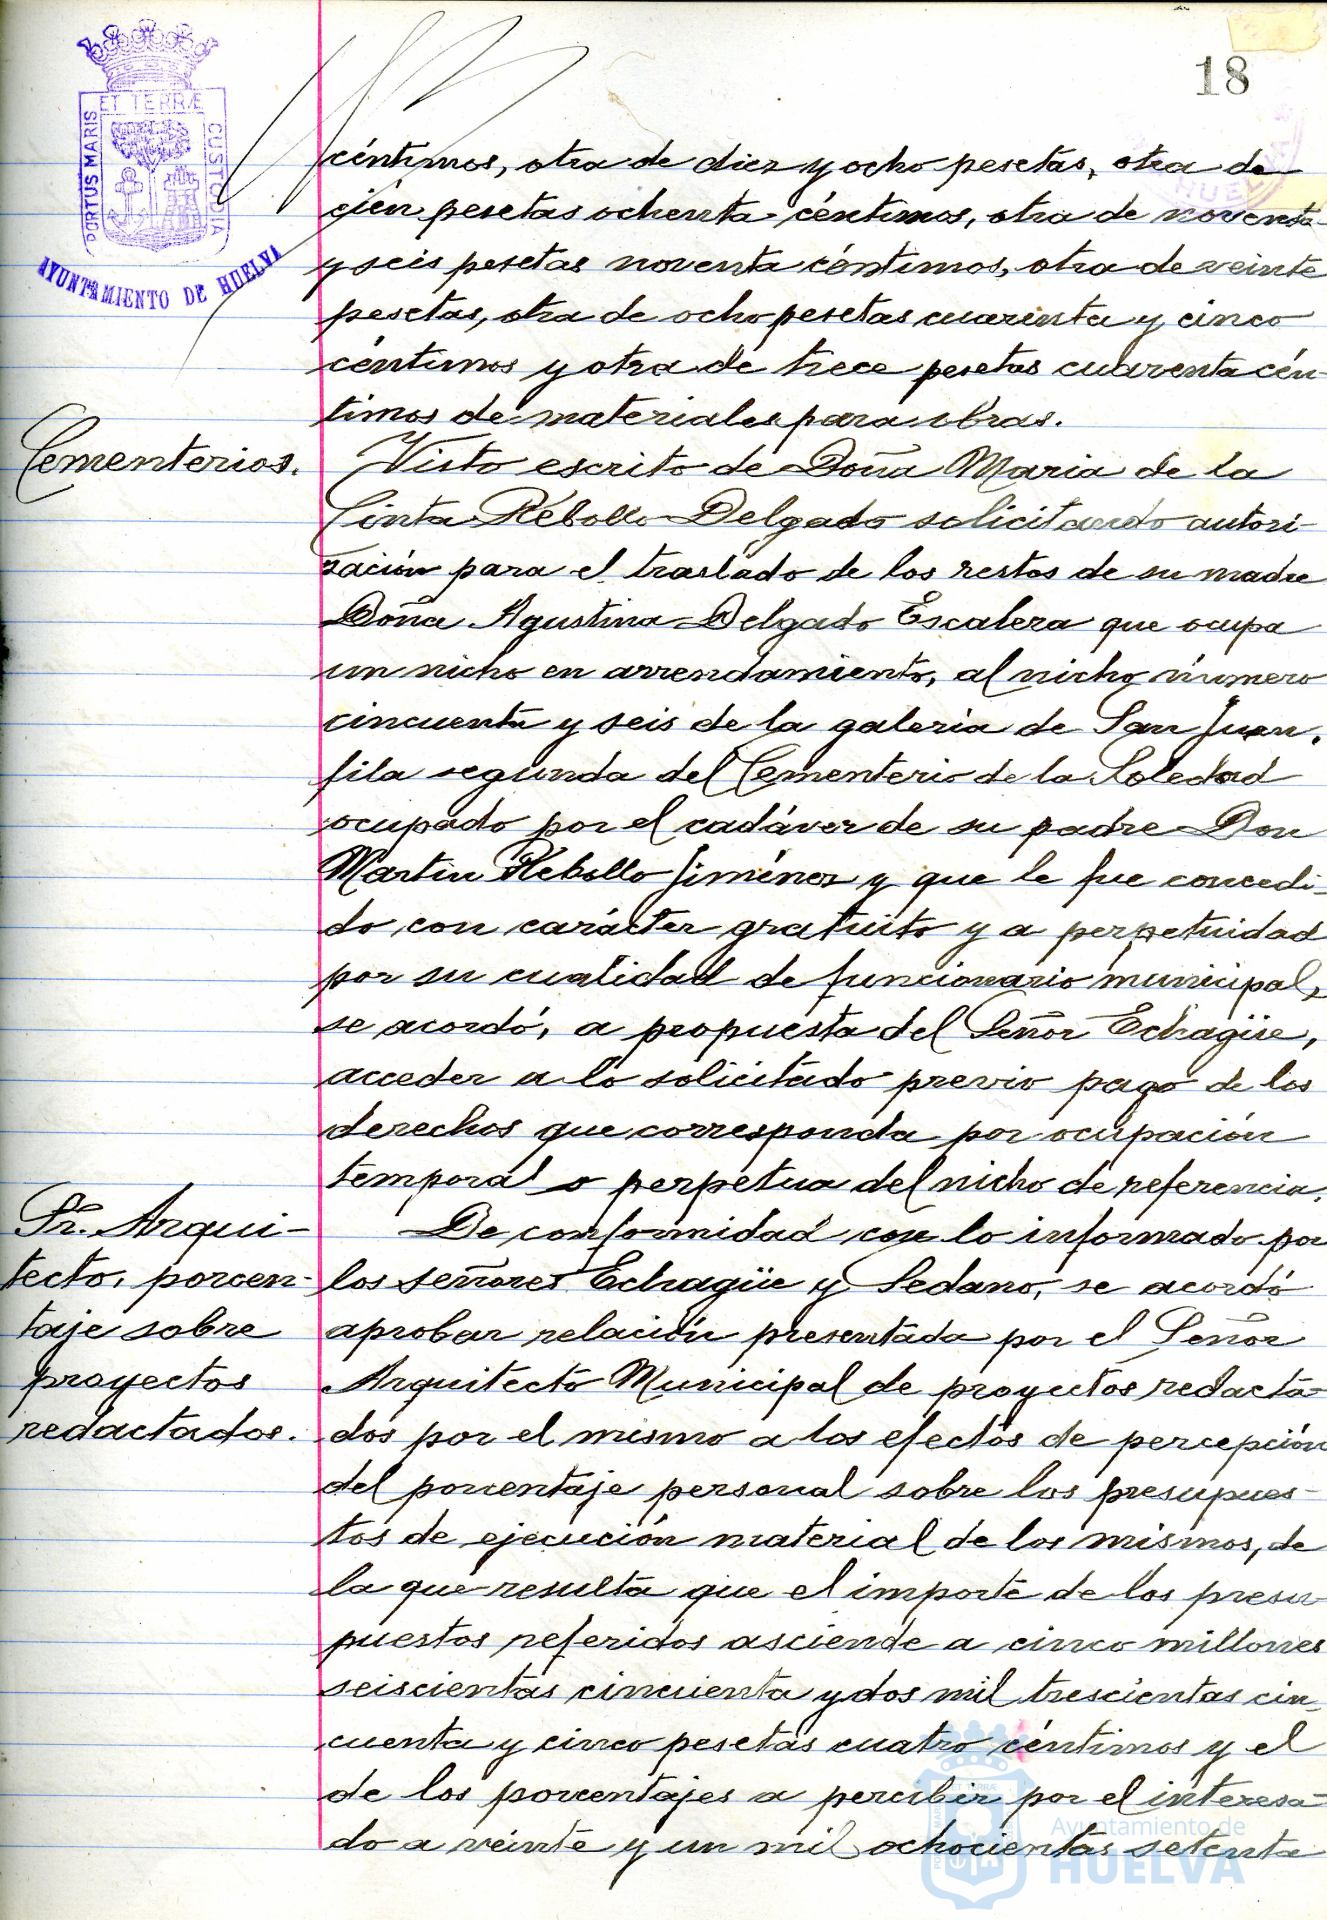 18
PORTUS MARIS ET TERRÆ CUSTODIA
AYUNTAMIENTO DE HUELVA
HUELVA
céntimos, otra de diez y ocho pesetas, otra de
cien pesetas ochenta céntimos, otra de noventa
y seis pesetas noventa céntimos, otra de veinte
pesetas, otra de ocho pesetas cuarenta y cinco
céntimos y otra de trece pesetas cuarenta cén-
timos de materiales para obras.
Cementerios.
Visto escrito de Doña Maria de la
Cinta Rebollo Delgado solicitando autori-
zación para el traslado de los restos de su madre
Doña Agustina Delgado Escalera que ocupa
un nicho en arrendamiento, al nicho número
cincuenta y seis de la galeria de San Juan,
fila segunda del Cementerio de la Soledad
ocupado por el cadáver de su padre Don
Martin Rebollo Jiménez y que le fue concedi-
do con carácter gratuito y a perpetuidad
por su cualidad de funcionario municipal,
se acordó, a propuesta del Señor Echagüe,
acceder a lo solicitado previo pago de los
derechos que corresponda por ocupación
temporal o perpetua del nicho de referencia.
Sr. Arqui-
tecto, porcen-
taje sobre
proyectos
redactados.
De conformidad con lo informado por
los señores Echagüe y Sedano, se acordó
aprobar relación presentada por el Señor
Arquitecto Municipal de proyectos redacta-
dos por el mismo a los efectos de percepción
del porcentaje personal sobre los presupues-
tos de ejecución material de los mismos, de
la que resulta que el importe de los presu-
puestos referidos asciende a cinco millones
seiscientas cincuenta y dos mil trescientas cin-
cuenta y cinco pesetas cuatro céntimos y el
de los porcentajes a percibir por el interesa-
do a veinte y un mil ochocientas setenta
Ayuntamiento de
HUELVA